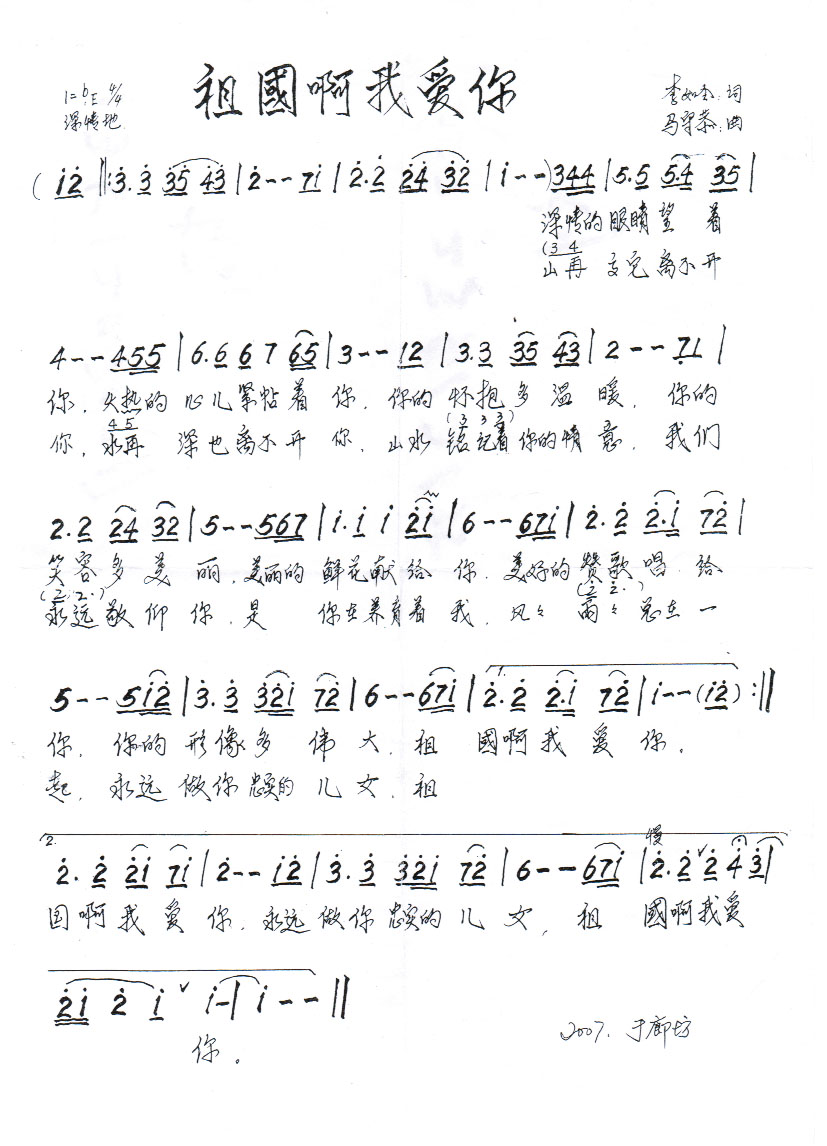 祖國啊我愛你
1=♭E 4/4
深情地
李如杰:词
马守恭:曲
(i̇2̇ ‖:3̇.3̇ 3̇5̇ 4̇3̇ | 2̇-- 7i̇ | 2̇.2̇ 2̇4̇ 3̇2̇ | i̇--) 344 | 5.5 5.4 35 |
深情的眼睛望着
(3 4
山再高它离不开
4--455 | 6.6 6 7 65 | 3--12 | 3.3 35 43 | 2--7.1 |
你,火热的心儿紧帖着你,你的怀抱多温暖,你的
4 5 (3 3 3)
你,水再深也离不开你,山水铭记着你的情意,我们
2.2 24 32 | 5--567 | i̇.i̇ i̇ 2̇i̇ | 6--67i̇ | 2̇.2̇ 2̇.i̇ 72̇ |
笑容多美丽,美丽的鲜花献给你,美好的赞歌唱给
(2.2.) (2̇ 2̇.)
永远敬仰你,是你在养育着我,风々雨々总在一
5--5i̇2̇ | 3̇.3̇ 3̇2̇i̇ 72̇ | 6--67i̇ | 1. 2̇.2̇ 2̇.i̇ 72̇ | i̇--(i̇2̇) :‖
你,你的形像多伟大,祖國啊我爱你。
起,永远做你忠实的儿女,祖
2.
2̇.2̇ 2̇i̇ 7i̇ | 2̇--i̇2̇ | 3̇.3̇ 3̇2̇i̇ 72̇ | 6--67i̇ | 慢 2̇.2̇ ∨ 2̇ 4̇ 3̇ |
国啊我爱你,永远做你忠实的儿女,祖國啊我爱
2̇i̇ 2̇ i̇ ∨ i̇- | i̇-- ‖
你。
2007.于廊坊